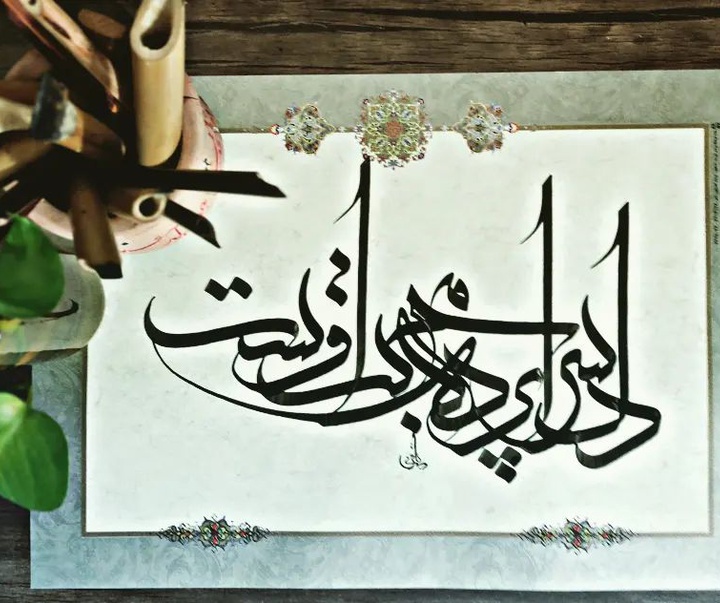 دل سراپرده محبت اوست